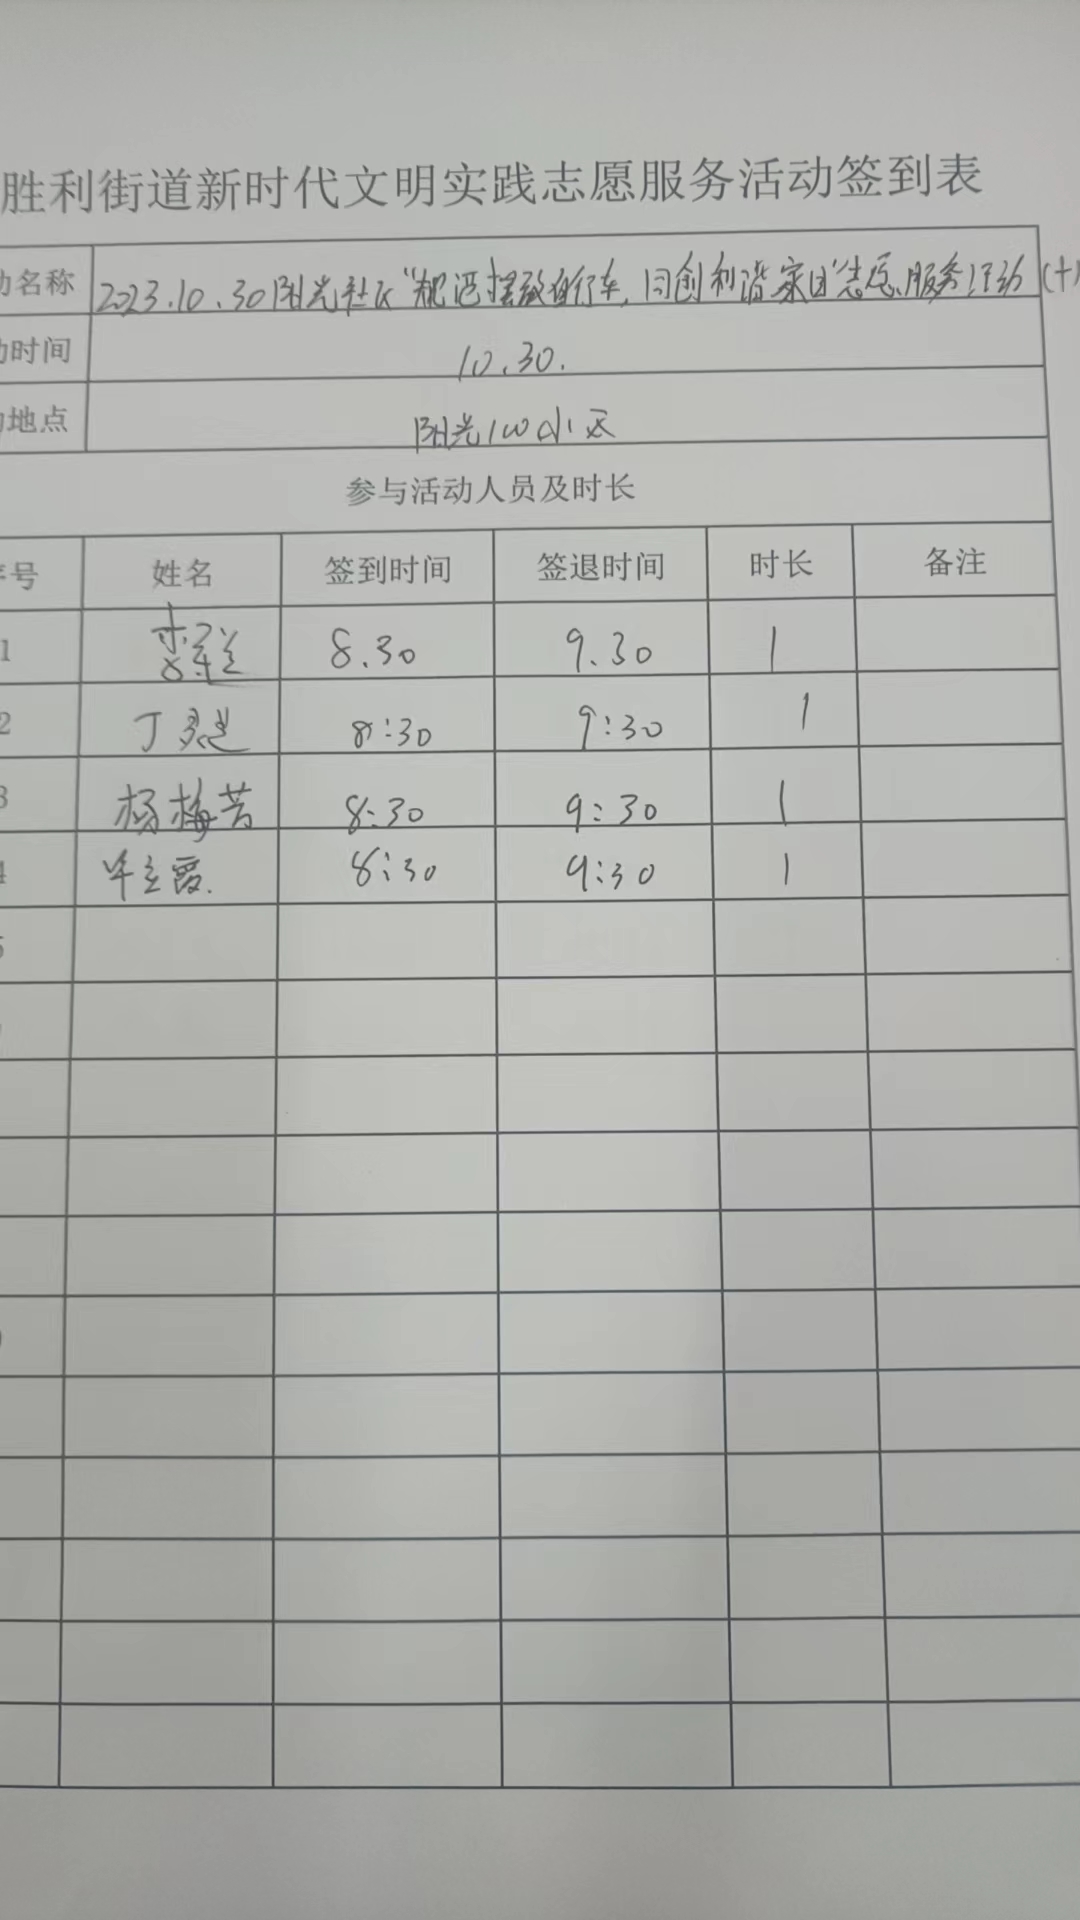 胜利街道新时代文明实践志愿服务活动签到表
动名称 2023.10.30阳光社区"规范摆放自行车,同创和谐家园"志愿服务活动(十
动时间 10.30.
动地点 阳光100小区
参与活动人员及时长
序号 姓名 签到时间 签退时间 时长 备注
1 8.30 9.30 1
2 丁 8:30 9:30 1
3 杨梅芳 8:30 9:30 1
4 霞. 8:30 9:30 1
5